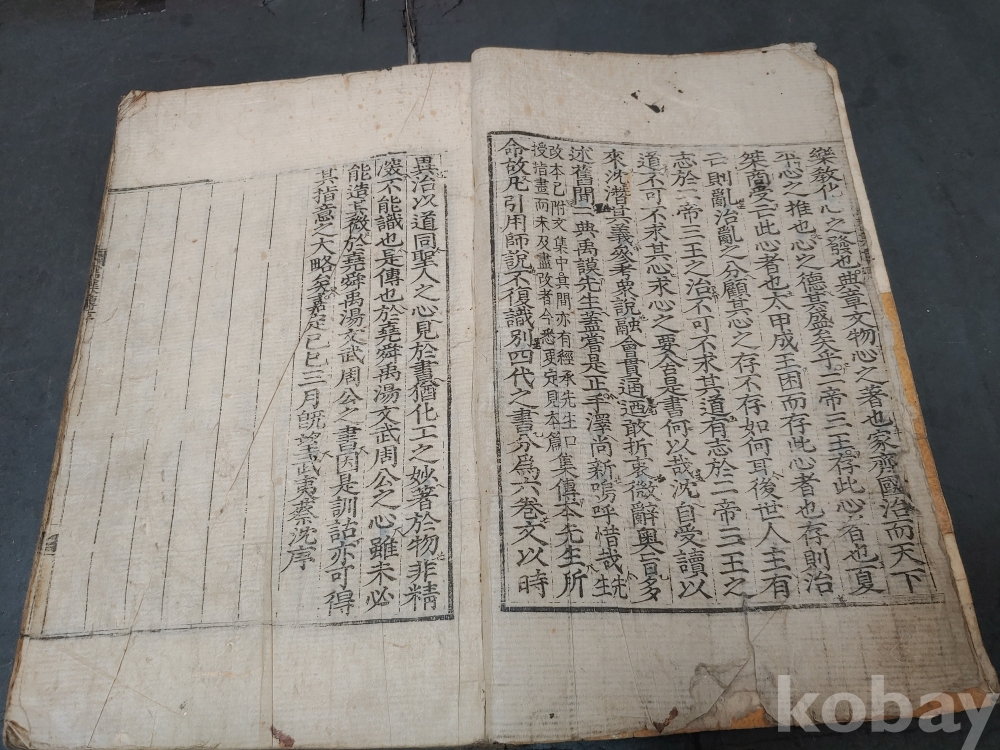 樂敎化心之發也典章文物心之著也家齊國治而天下
平心之推也心之德其盛矣乎二帝三王存此心者也夏
桀商受亡此心者也太甲成王困而存此心者也存則治
亡則亂治亂之分顧其心之存不存如何耳後世人主有
志於二帝三王之治不可不求其道有志於二帝三王之
道不可不求其心求心之要舍是書何以哉沈自受讀以
來沈潛其義參考衆說融會貫通迺敢折衷微辭奧旨多
述舊聞二典禹謨先生蓋嘗是正手澤尚新嗚呼惜哉先生
改本已附文集中其間亦有經承先生口
授指畫而未及盡改者今悉更定見本篇
集傳本先生所
命故凡引用師說不復識別四代之書分爲六卷文以時
異治以道同聖人之心見於書猶化工之妙著於物非精
深不能識也是傳也於堯舜禹湯文武周公之心雖未必
能造其微於堯舜禹湯文武周公之書因是訓詁亦可得
其指意之大略矣嘉定己巳三月旣望武夷蔡沈序
kobay